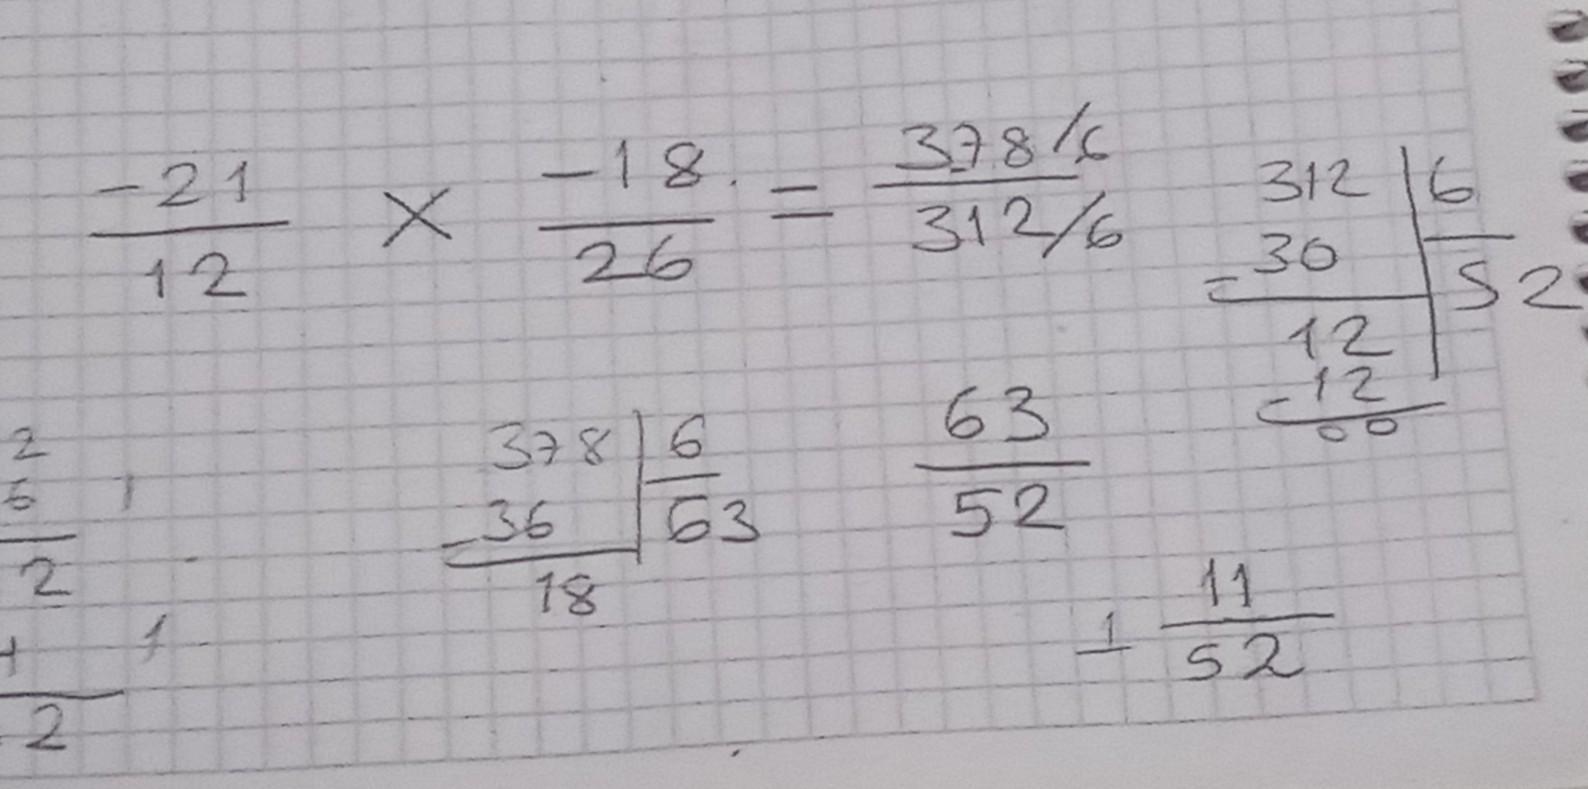 -21/12 × -18/26 = 378/6 / 312/6
312 | 6
- 30 | 52
12
- 12
00
378 | 6
- 36 | 63
18
63/52
1 11/52
2
1
2
1
2